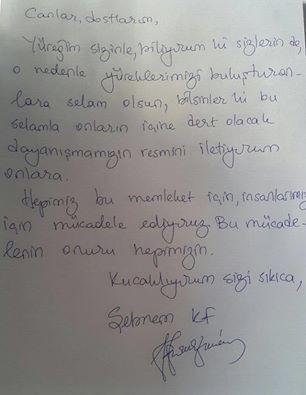 Canlar, dostlarım,
Yüreğim sizinle, biliyorum ki sizlerin de,
o nedenle yüreklerimizi buluşturan-
lara selam olsun, bilsinler ki bu
selamla onların içine dert olacak
dayanışmamızın resmini iletiyorum
onlara.
Hepimiz bu memleket için, insanlarımız
için mücadele ediyoruz. Bu mücade-
lenin onuru hepimizin.
Kucaklıyorum sizi sıkıca,
Şebnem kf